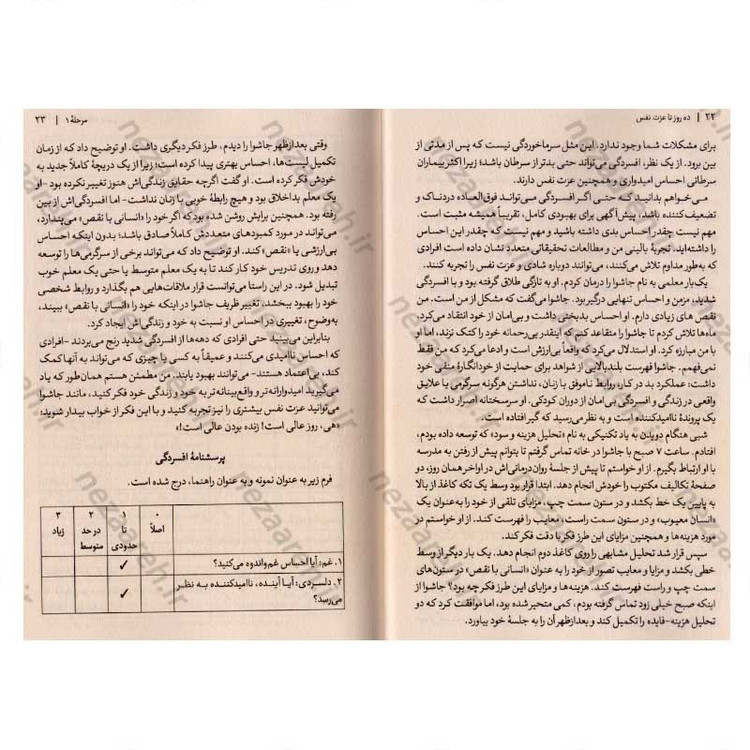 ۲۲ | ده روز تا عزت نفس
برای مشکلات شما وجود ندارد. این مثل سرماخوردگی نیست که پس از مدتی از
بین برود. از یک نظر، افسردگی می‌تواند حتی بدتر از سرطان باشد؛ زیرا اکثر بیماران
سرطانی احساس امیدواری و همچنین عزت نفس دارند.
می‌خواهم بدانید کـه حتـی اگـر افسـردگی مـی‌توانـد فوق‌العاده دردنـاک و
تضعیف‌کننده باشد، پیش‌آگهی برای بهبودی کامل، تقریباً همیشه مثبت است.
مهم نیست چقدر احساس بدی داشته باشید و مهم نیست که چقدر این احساس
را داشته‌اید. تجربهٔ بالینی من و مطالعات تحقیقاتی متعدد نشان داده است افرادی
که به‌طور مداوم تلاش می‌کنند، می‌توانند دوباره شادی و عزت نفس را تجربه کنند.
یک‌بار معلمی به نام جاشوا را درمان کردم. او به تازگی طلاق گرفته بود و با افسردگی
شدید، مزمن و احساس تنهایی درگیر بود. جاشوا می‌گفت که مشکل از من است. من
نقص‌های زیادی دارم. او احساس بدبختی داشت و بی‌امان از خود انتقاد می‌کرد.
ماه‌ها تلاش کردم تا جاشوا را متقاعد کنم که اینقدر بی‌رحمانه خود را کتک نزند، اما او
با من مبارزه کرد. او استدلال می‌کرد که واقعاً بی‌ارزش است و ادعا می‌کرد که من فقط
نمی‌فهمم. جاشوا فهرست بلندبالایی از شواهد برای حمایت از خودانگارهٔ منفی خود
داشت: عملکرد بد در کار، روابط ناموفق با زنان، نداشتن هرگونه سرگرمی یا علایق
واقعی در زندگی و افسردگی بی‌امان از دوران کودکی. او سرسختانه اصرار داشت که
یک پروندهٔ ناامیدکننده است و به نظر می‌رسید که گیر افتاده است.
شبی هنگام دویدن به یاد تکنیکی به نام «تحلیل هزینه و سود» که توسعه داده بودم،
افتادم. ساعت ۷ صبح با جاشوا در خانه تماس گرفتم تا بتوانم پیش از رفتن به مدرسه
با او ارتباط بگیرم. از او خواستم تا پیش از جلسهٔ روان‌درمانی‌اش در اواخر همان روز، دو
صفحهٔ تکالیف مکتوب را خودش انجام دهد. ابتدا قرار بود وسط یک تکه کاغذ از بالا
به پایین یک خط بکشد و در ستون سمت چپ، مزایای تلقی از خود را به‌عنوان یک
«انسان معیوب» و در ستون سمت راست، معایب را فهرست کند. از او خواستم در
مورد هزینه‌ها و همچنین مزایای این طرز فکر با دقت فکر کند.
سپس قرار شد تحلیل مشابهی را روی کاغذ دوم انجام دهد. یک بار دیگر از وسط
خطی بکشد و مزایا و معایب تصور از خود را به عنوان «انسانی با نقص» در ستون‌های
سمت چپ و راست فهرست کند. هزینه‌ها و مزایای این طرز فکر چه بود؟ جاشوا از
اینکه صبح خیلی زود تماس گرفته بودم، کمی متحیر شده بود، اما موافقت کرد که دو
تحلیل هزینه-فایده را تکمیل کند و بعدازظهر آن را به جلسهٔ خود بیاورد.
مرحلهٔ ۱ | ۲۳
وقتی بعدازظهر جاشوا را دیدم، طرز فکر دیگری داشت. او توضیح داد که از زمان
تکمیل لیست‌ها، احساس بهتری پیدا کرده است؛ زیرا از یک دریچهٔ کاملاً جدید به
خودش فکر کرده است. او گفت اگرچه حقایق زندگی‌اش هنوز تغییر نکرده بود -او
یک معلم بداخلاق بود و هیچ رابطهٔ خوبی با زنان نداشت- اما افسردگی‌اش از بین
رفته بود. همچنین برایش روشن شده بود که اگر خود را «انسانی با نقص» می‌پندارد،
می‌تواند در مورد کمبودهای متعددش کاملاً صادق باشد؛ بدون اینکه احساس
بی‌ارزشی یا «نقص» کند. او توضیح داد که می‌تواند برخی از سرگرمی‌ها را توسعه
دهد و روی تدریس خود کار کند تا به یک معلم متوسط یا حتی یک معلم خوب
تبدیل شود. در این راستا می‌توانست قرار ملاقات‌هایی هم بگذارد و روابط شخصی
خود را بهبود ببخشد. تغییر ظریف جاشوا در اینکه خود را «انسانی با نقص» ببیند،
به‌وضوح، تغییری در احساس او نسبت به خود و زندگی‌اش ایجاد کرد.
بنابراین می‌بینید حتی افرادی که دهه‌ها از افسردگی شدید رنج می‌بردند -افرادی
که احساس ناامیدی می‌کنند و عمیقاً به کسی یا چیزی که می‌تواند به آنها کمک
کند، بی‌اعتماد هستند- می‌توانند بهبود یابند. من مطمئن هستم همان‌طور که یاد
می‌گیرید امیدوارانه‌تر و واقع‌بینانه‌تر به خود و زندگی خود فکر کنید، مانند جاشوا
می‌توانید عزت نفس بیشتری را نیز تجربه کنید و با این فکر از خواب بیدار شوید:
«هی، روز عالی است! زنده بودن عالی است!»
پرسشنامهٔ افسردگی
فرم زیر به عنوان نمونه و به عنوان راهنما، درج شده است.
۰ ۱ ۲ ۳
اصلاً تا حدودی در حد متوسط زیاد
۱. غم: آیا احساس غم و اندوه می‌کنید؟ ✓
۲. دلسردی: آیـا آینده، ناامیدکننده بـه نظـر
می‌رسد؟ ✓
nezaareh.ir